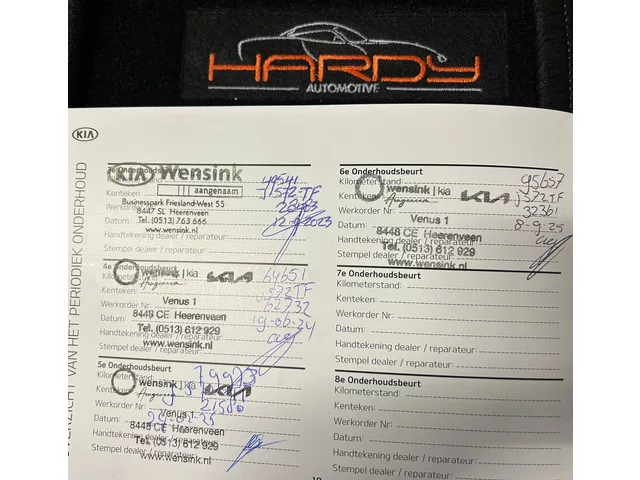 HARDY
AUTOMOTIVE
KIA
OVERZICHT VAN HET PERIODIEK ONDERHOUD
KIA Wensink
aangenaam
Kilometerstand: 49541
Kenteken: J-572-TF
Businesspark Friesland-West 55
Werkorder Nr:
8447 SL Heerenveen
Datum: 2023
Tel. (0513) 763 666
www.wensink.nl
Handtekening dealer / reparateur:
Stempel dealer / reparateur:
4e Onderhoudsbeurt
wensink | kia KIA
Kilometerstand: 64651
Kenteken: J572TF
Venus 1
Werkorder Nr:
8448 CE Heerenveen
Datum: 19-06-24
Tel. (0513) 612 929
Handtekening dealer / reparateur:
www.wensink.nl
Stempel dealer / reparateur:
5e Onderhoudsbeurt
Kilometerstand:
wensink | kia KIA
Kenteken:
Werkorder Nr:
Venus 1
Datum:
8448 CE Heerenveen
Handtekening dealer / reparateur:
Tel. (0513) 612 929
Stempel dealer / reparateur:
www.wensink.nl
6e Onderhoudsbeurt
Kilometerstand: 95657
wensink | kia KIA
Kenteken: J572TF
Werkorder Nr: 32361
Venus 1
Datum: 8-9-25
8448 CE Heerenveen
Handtekening dealer / reparateur:
Tel. (0513) 612 929
Stempel dealer / reparateur:
www.wensink.nl
7e Onderhoudsbeurt
Kilometerstand:
Kenteken:
Werkorder Nr:
Datum:
Handtekening dealer / reparateur:
Stempel dealer / reparateur:
8e Onderhoudsbeurt
Kilometerstand:
Kenteken:
Werkorder Nr:
Datum:
Handtekening dealer / reparateur:
Stempel dealer / reparateur: